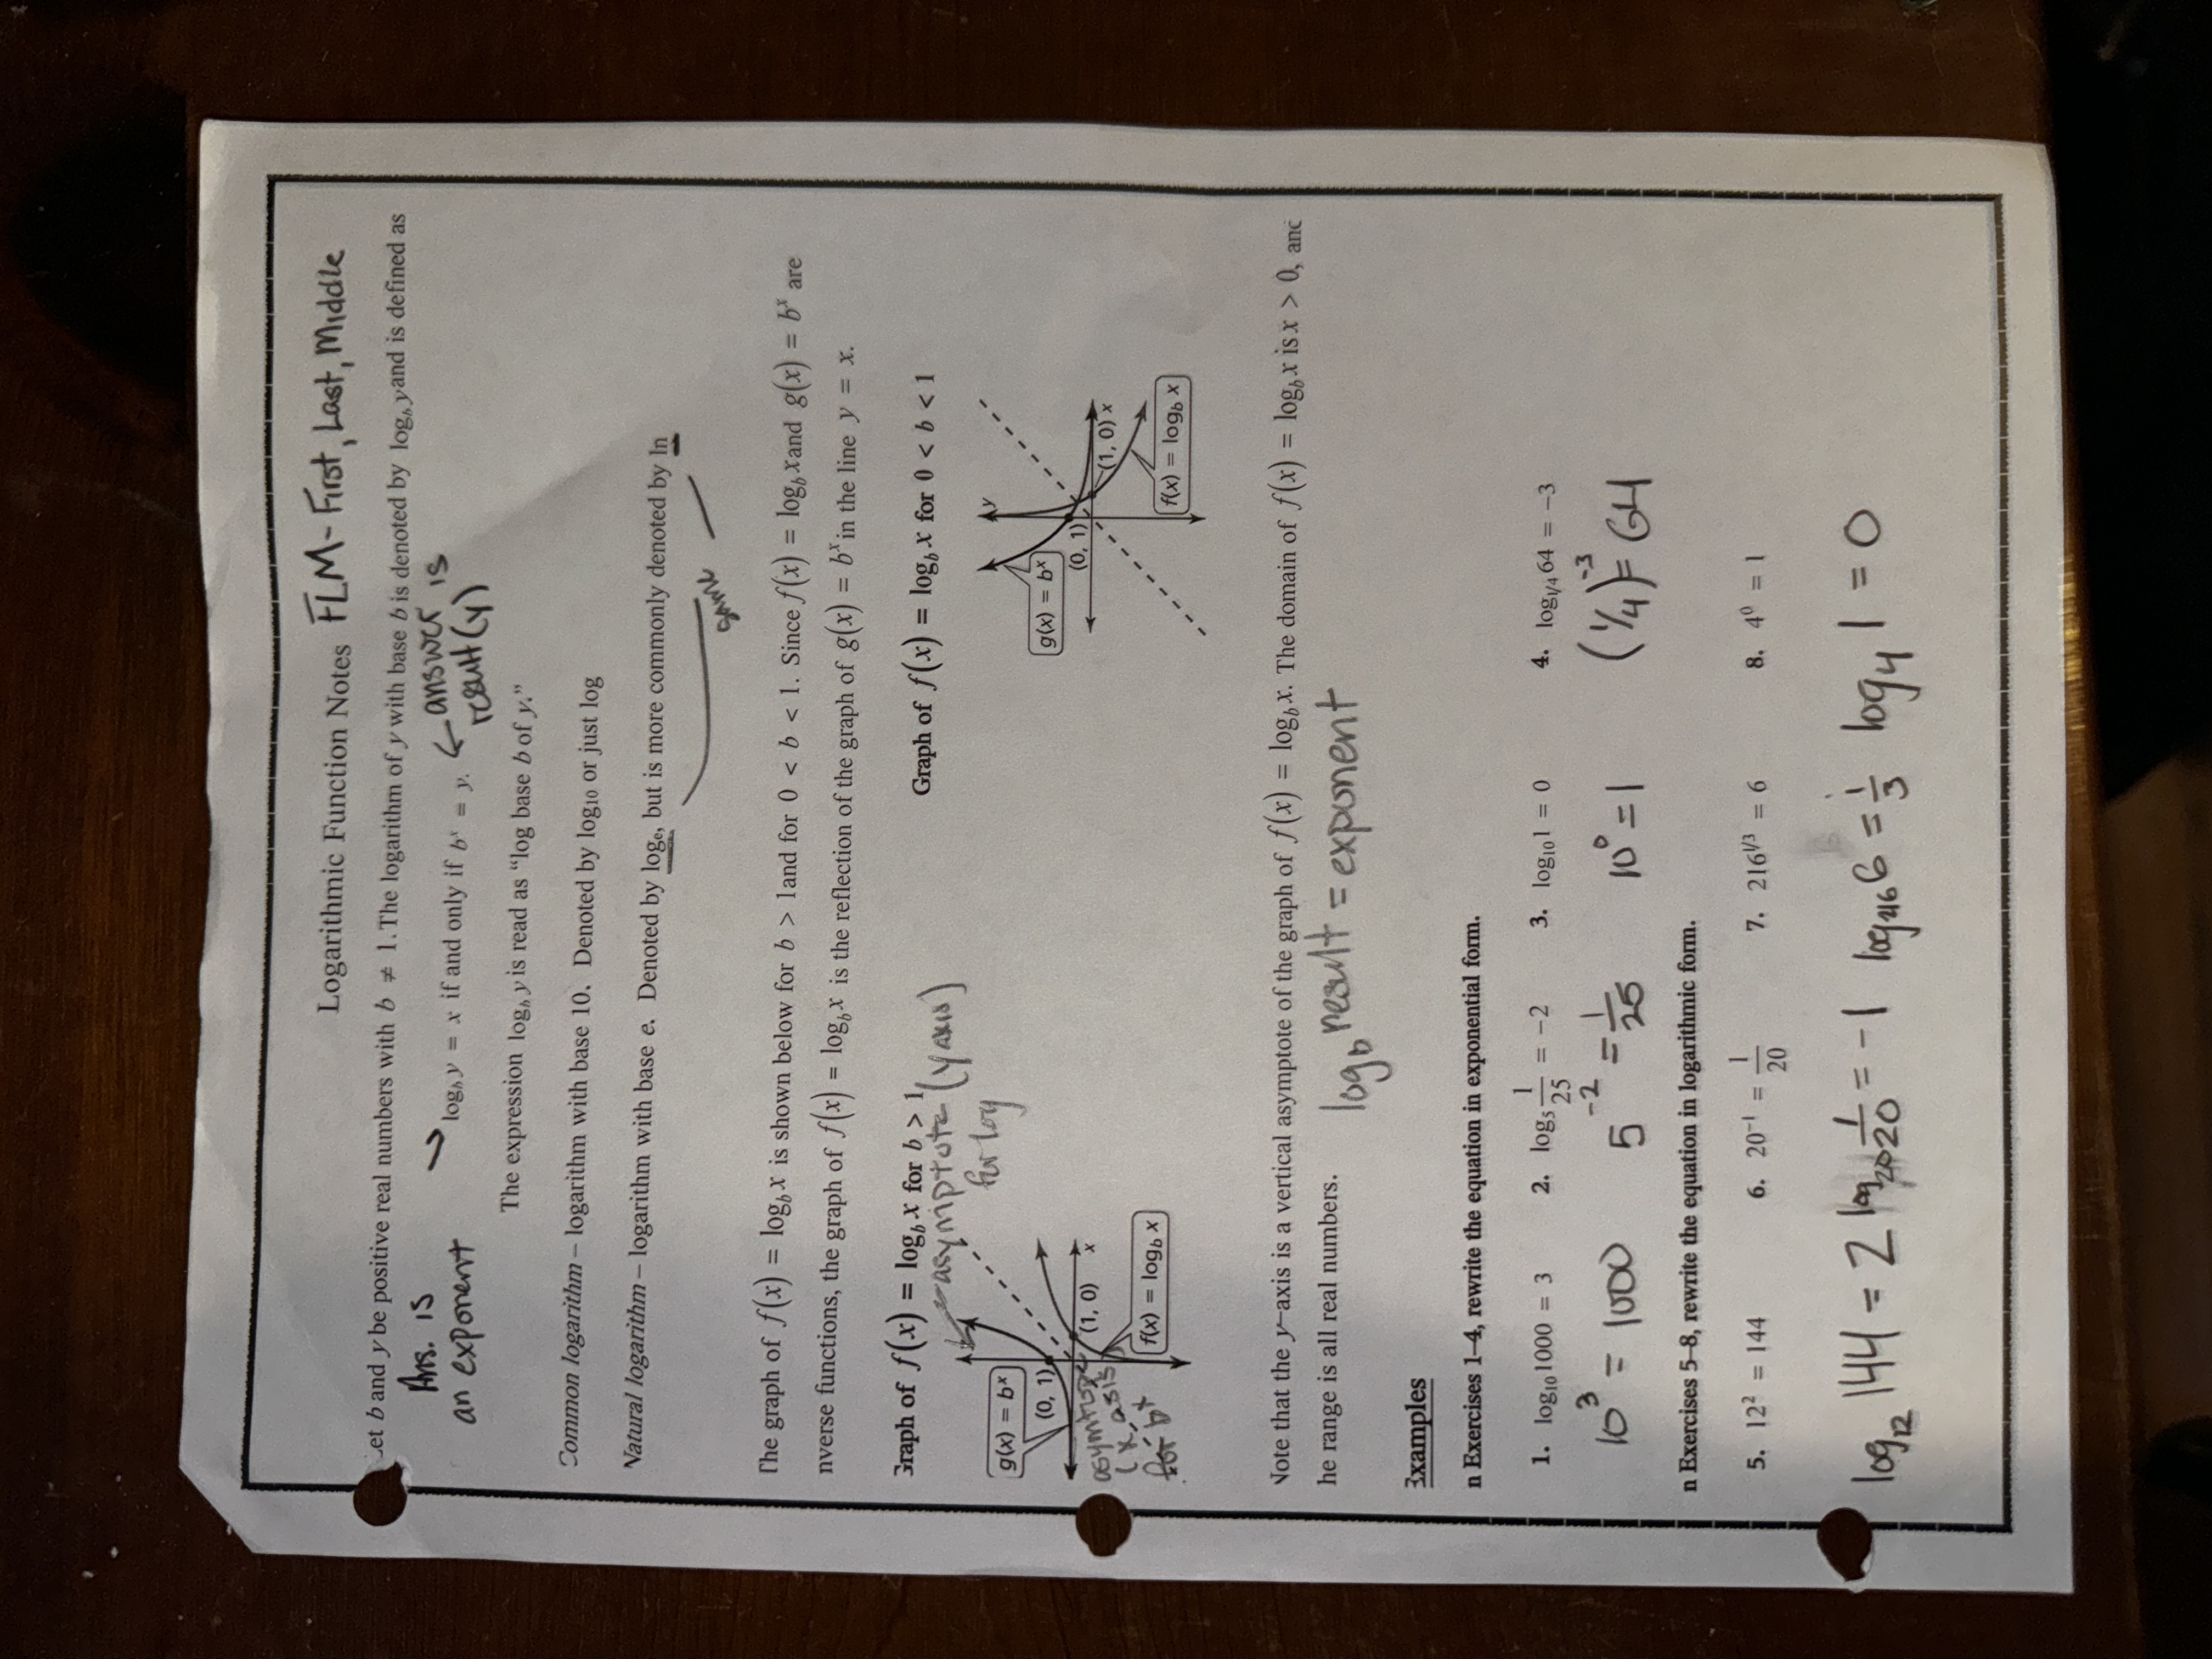 Logarithmic Function Notes FLM- First, Last, Middle
Let b and y be positive real numbers with b ≠ 1. The logarithm of y with base b is denoted by log_b y and is defined as
Ans. is
an exponent
log_b y = x if and only if b^x = y. ← answer is
result (y)
The expression log_b y is read as “log base b of y.”
Common logarithm – logarithm with base 10. Denoted by log₁₀ or just log
Natural logarithm – logarithm with base e. Denoted by logₑ, but is more commonly denoted by ln
same
The graph of f(x) = log_b x is shown below for b > 1 and for 0 < b < 1. Since f(x) = log_b x and g(x) = b^x are
nverse functions, the graph of f(x) = log_b x is the reflection of the graph of g(x) = b^x in the line y = x.
Graph of f(x) = log_b x for b > 1
asymptote (y axis)
for log
g(x) = b^x
(0, 1)
(1, 0) x
asymtope
(x asis)
for b^x
f(x) = log_b x
Graph of f(x) = log_b x for 0 < b < 1
y
g(x) = b^x
(0, 1)
(1, 0) x
f(x) = log_b x
Note that the y–axis is a vertical asymptote of the graph of f(x) = log_b x. The domain of f(x) = log_b x is x > 0, and
he range is all real numbers.
log_b result = exponent
Examples
n Exercises 1–4, rewrite the equation in exponential form.
1. log₁₀ 1000 = 3 2. log₅ 1/25 = −2 3. log₁₀ 1 = 0 4. log_1/4 64 = −3
10³ = 1000 5⁻² = 1/25 10⁰ = 1 (1/4)⁻³ = 64
n Exercises 5–8, rewrite the equation in logarithmic form.
5. 12² = 144 6. 20⁻¹ = 1/20 7. 216^1/3 = 6 8. 4⁰ = 1
log₁₂ 144 = 2 log₂₀ 1/20 = -1 log₂₁₆ 6 = 1/3 log₄ 1 = 0